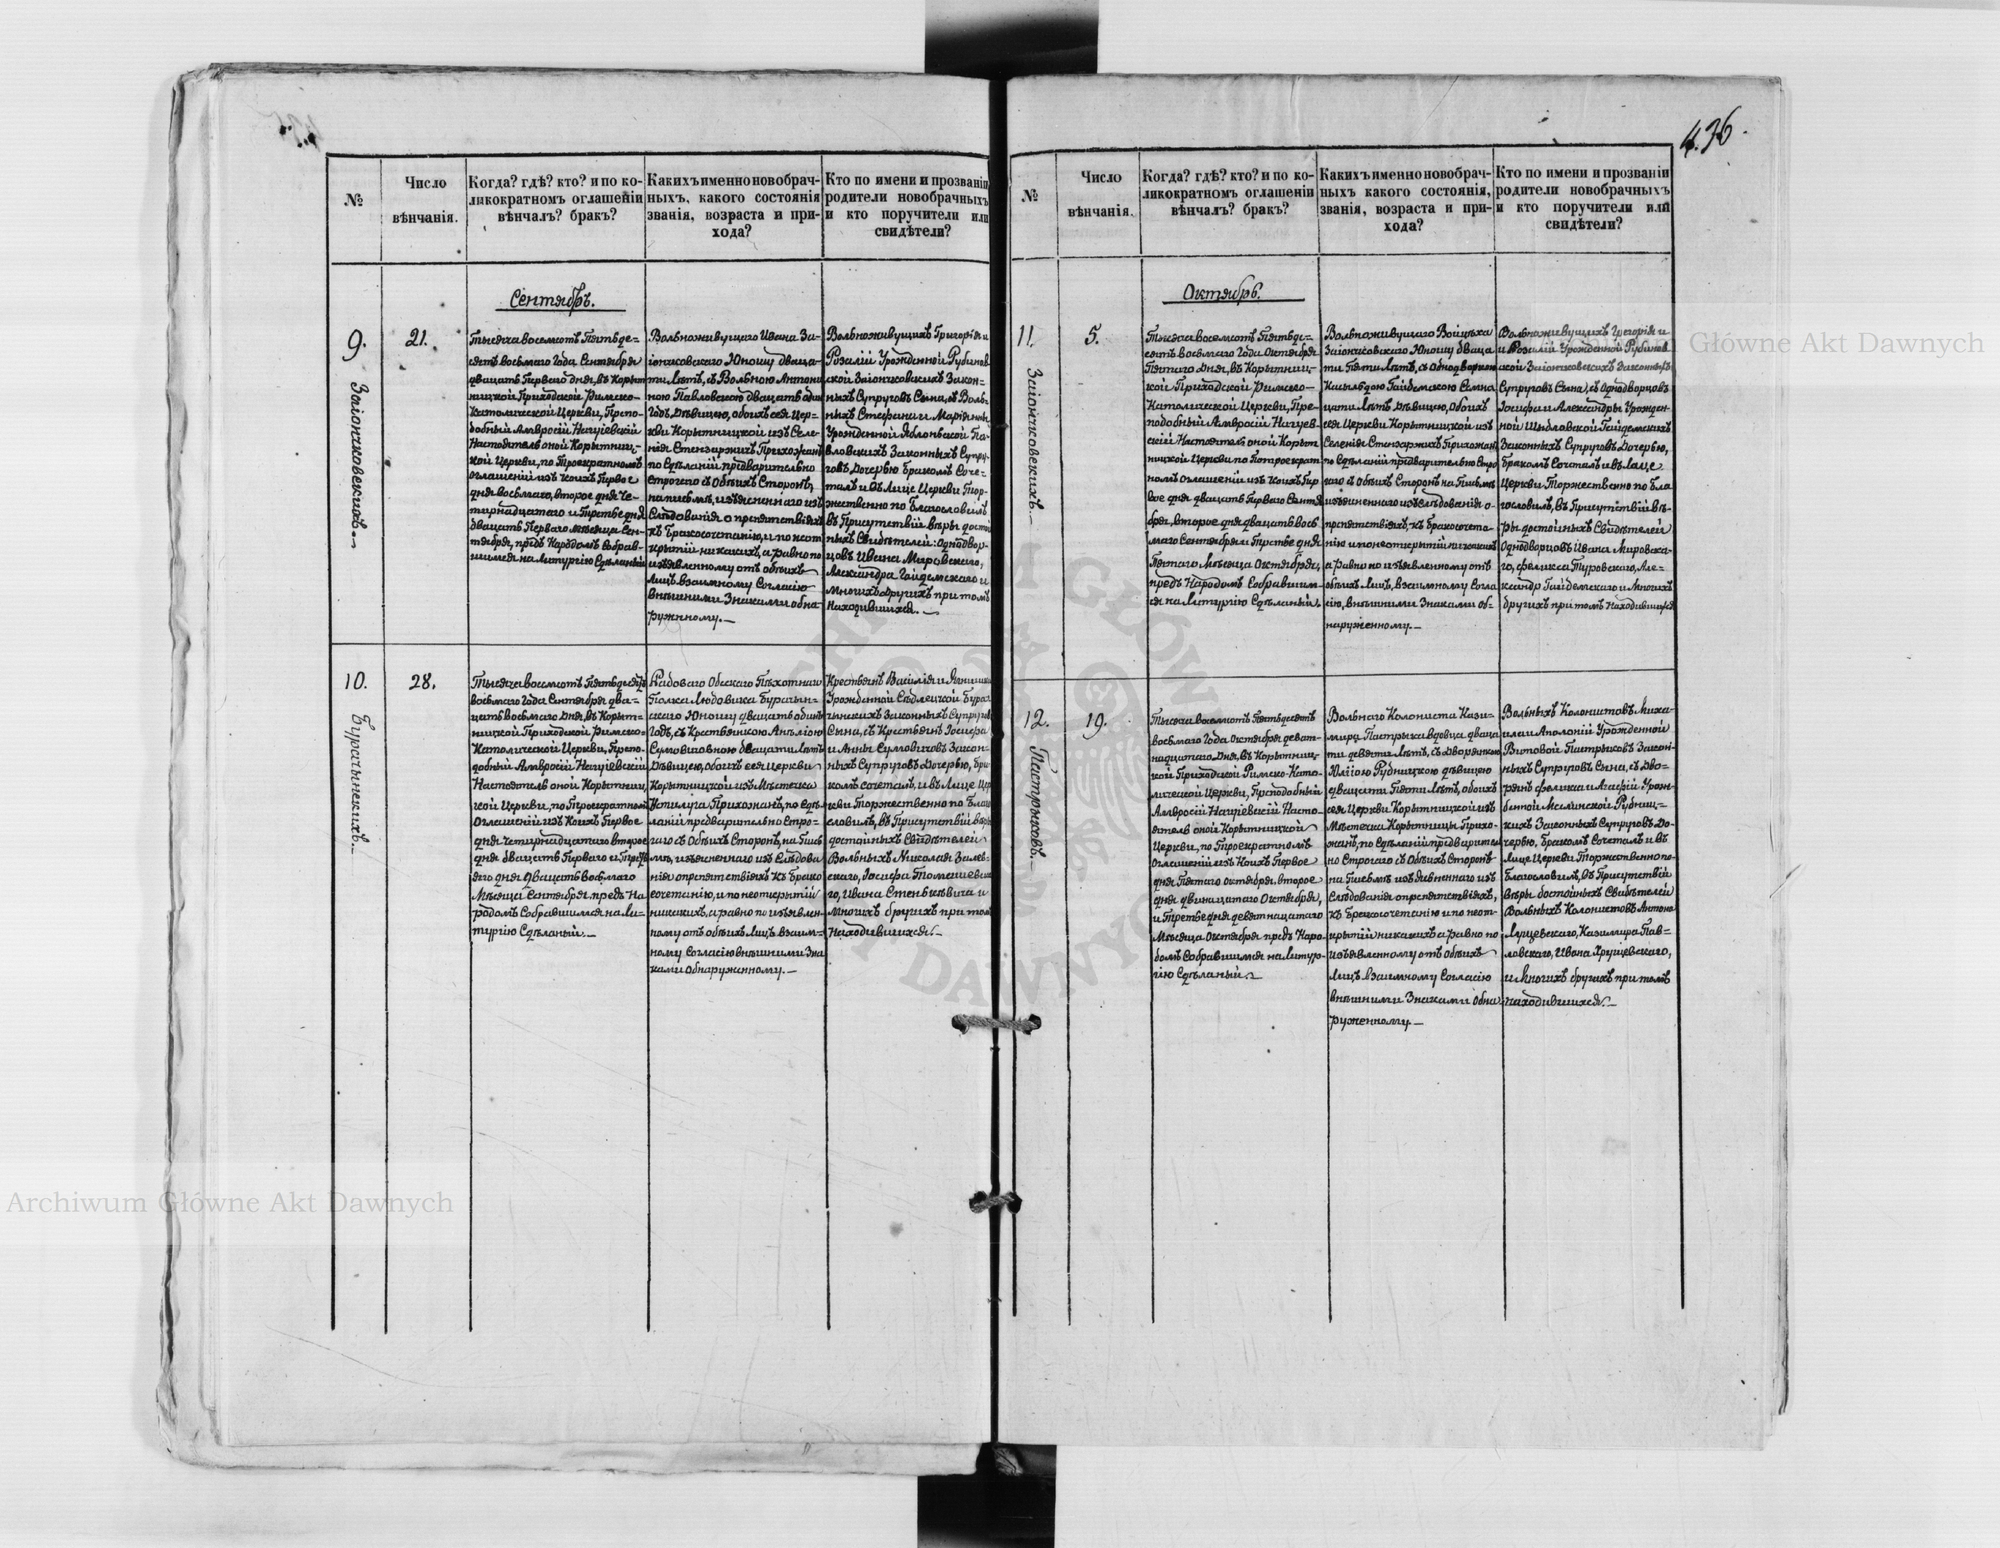 436.
№
Число
вѣнчанія.
Когда? гдѣ? кто? и по ко-
ликократномъ оглашеніи
вѣнчалъ? бракъ?
Какихъ именно новобрач-
ныхъ, какого состоянія
званія, возраста и при-
хода?
Кто по имени и прозванію
родители новобрачныхъ
и кто поручители или
свидѣтели?
Сентябрь.
9.
Заіончковскихъ.
21.
Тысяча восемсотъ Пятьде-
сятъ восьмаго Года Сентября
двацать Перваго дня, въ Корыт-
ницкой Приходской Римско-
Католической Церкви, Препо-
добный Амвросій Нагуевскій
Настоятель оной Корытниц-
кой Церкви, по Троекратномъ
оглашеніи изъ коихъ Первое
дня восьмаго, второе дня че-
тырнадцатаго и Третье дня
двацать Перваго месяца Сен-
тября, предъ Народомъ Собрав-
шимся на Литургію Сдѣланый
Вольноживущаго Ивана За-
іончковскаго Юношу двaца-
ти лѣтъ, съ Вольною Антони-
ною Павловскою двацать одинъ
Годъ, Дѣвицею, обоихъ сея Цер-
кви Корытницкой изъ Селе-
нія Стензаржихъ Прихожанъ
по Сдѣланій предварительно
Строгаго съ Обѣихъ Сторонъ,
на письмѣ, изъясненнаго изъ
Слѣдованія о препятствіяхъ
къ Бракосочетанію, и по неот-
крытій никакихъ, а равно по
изъявленному отъ обѣихъ
Лицъ взаимному Согласію
внѣшними Знаками обна
руженному.
Вольноживущихъ Григорія и
Розаліи Урожденной Рубинов-
ской Заіончковскихъ Закон-
ныхъ Супруговъ Сына, съ Воль-
ныхъ Стефана и Маріянны
Урожденной Яблонской Па-
вловскихъ Законныхъ Супру-
говъ Дочерью Бракомъ Соче-
талъ и въ Лице Церкви Тор-
жественно по Благословилъ
въ Присутствій вѣры достой-
ныхъ Свидѣтелей: Однодвор-
цовъ Ивана Мировскаго,
Александра Гайдемскаго и
Многихъ другихъ при томъ
Находившихся.
10.
Бурачынскихъ.
28.
Тысяча восемсотъ Пятьдесятъ
восьмаго Года Сентября два-
цать восьмаго Дня, въ Корыт-
ницкой Приходской Римско-
Католической Церкви, Препо-
добный Амвросій Нагуевскій
Настоятель оной Корытниц-
кой Церкви, по Троекратномъ
Оглашеніи изъ Коихъ Первое
дня Четырнадцатаго второе
дня двацать Перваго и Треть-
яго дня двацать восьмаго
Мѣсяца Сентября предъ На-
родомъ Собравшимся на Ли-
тургію Сдѣланый.
Рядоваго Одескаго Пѣхотнаго
Полка Людовика Бурачын-
скаго Юношу двацать одинъ
Годъ, съ Крестьянкою Анѣлiою
Сулковичовною двацати Лѣтъ
Дѣвицею, обоихъ сея Церкви
Корытницкой изъ Мѣстечка
Устилуга Прихожанъ, по Сдѣ-
ланій предварительно Стро-
гаго съ Обѣихъ Сторонъ, на Пись
мѣ, изъясненнаго изъ Слѣдова
нія о препятствіяхъ къ Брако
сочетанію, и по неоткрытій
никакихъ, а равно по изъявлен-
ному отъ обѣихъ Лицъ взаим-
ному Согласію внѣшними Зна
ками обнаруженному.
Крестьянъ Василія и Агнишки
Урожденной Седлецкой Бура-
чынскихъ Законныхъ Супруговъ
Сына, съ Крестьянъ Іосифа
и Анны Сулковичовъ Закон-
ныхъ Супруговъ Дочерью, Бра-
комъ сочеталъ, и въ Лице Цер
кви Торжественно по Благо
словилъ, въ Присутствій вѣры
достойныхъ Свидѣтелей
Вольныхъ Николая Залев-
скаго, Іосифа Томашевска-
го, Ивана Стенькевича и
Многихъ другихъ при томъ
Находившихся.
№
Число
вѣнчанія.
Когда? гдѣ? кто? и по ко-
ликократномъ оглашеніи
вѣнчалъ? бракъ?
Какихъ именно новобрач-
ныхъ какого состоянія,
званія, возраста и при-
хода?
Кто по имени и прозванію
родители новобрачныхъ
и кто поручители или
свидѣтели?
Октябрь.
11.
Заіончковскихъ.
5.
Тысяча восемсотъ Пятьде-
сятъ восьмаго Года Октября
Пятаго Дня, въ Корытниц-
кой Приходской Римско-
Католической Церкви, Пре-
подобный Амвросій Нагуев-
скій Настоятель оной Корыт
ницкой Церкви по Потроекрат
номъ оглашеніи изъ Коихъ Пер
вое дня двацать Перваго Сентя
бря, второе дня двацать вось
маго Сентября и Третье дня
Пятаго Мѣсяца Октября,
предъ Народомъ Собравшим-
ся на Литургію Сдѣланый.
Вольноживущаго Войцѣха
Заіончковскаго Юношу дваца
ти Пяти Лѣтъ, съ Однодворкою
Касильдою Гайдемскою Семна
цати Лѣтъ Дѣвицею, Обоихъ
сея Церкви Корытницкой изъ
Селенія Стензаржихъ Прихожанъ
по Сдѣланій предварительно Стро
гаго съ Обѣихъ Сторонъ на Письмѣ
изъясненнаго изъ Слѣдованія о
препятствіяхъ, къ Бракосочета-
нію и по неоткрытій никакихъ
а равно по изъявленному отъ
обѣихъ Лицъ, взаимному Согла
сію, внѣшними Знаками об-
наруженному.
Вольноживущихъ Григорія и
и Розаліи Урожденной Рубинов
ской Заіончковскихъ Законныхъ
Супруговъ Сына, съ Однодворцовъ
Іосифа и Александры Урожден-
ной Шыдловской Гайдемскихъ
Законныхъ Супруговъ Дочерью,
Бракомъ Сочеталъ и въ Лице
Церкви Торжественно по Бла
гословилъ, въ Присутствій вѣ-
ры достойныхъ Свидѣтелей
Однодворцовъ Ивана Мировска-
го, Феликса Туровскаго, Але-
ксандр Гайдемскаго и Многихъ
другихъ при томъ Находившихся
12.
Пастрыковъ.
19.
Тысяча восемсотъ Пятьдесятъ
восьмаго Года Октября девят-
надцатаго Дня, въ Корытниц-
кой Приходской Римско-Като-
лической Церкви, Преподобный
Амвросій Нагуевскій Насто-
ятель оной Корытницкой
Церкви, по Троекратномъ
Оглашеніи изъ Коихъ Первое
дня Пятаго Октября, второе
дня двѣнацатаго Октября,
и Третье дня девятнацатаго
Мѣсяца Октября предъ Наро-
домъ Собравшимся на Литур-
гію Сдѣланый.
Вольнаго Колониста Кази-
мира Пастрыка вдовца дваца
ти девяти Лѣтъ, съ Дворянкою
Юліею Рудницкою дѣвицею
двацати Пяти Лѣтъ, обоихъ
сея Церкви Корытницкой изъ
Мѣстечка Корытницы Прихо-
жанъ, по Сдѣланій предварител
но Строгаго съ Обѣихъ Сторонъ
на Письмѣ изъясненнаго изъ
Слѣдованія о препятствіяхъ,
къ Бракосочетанію и по неот-
крытій никакихъ а равно по
изъявленному отъ обѣихъ
Лицъ взаимному Согласію
внѣшними Знаками Обна
руженному.
Вольныхъ Колонистовъ Миха-
ила и Аполоніи Урожденной
Витовой Пастрыковъ Закон-
ныхъ Супруговъ Сына, съ Дво-
рянъ Феликса и Агафіи Урож-
денной Маминской Рудниц-
кихъ Законныхъ Супруговъ До-
черью, Бракомъ Сочеталъ и въ
Лице Церкви Торжественно по-
Благословилъ, въ Присутствій
вѣры достойныхъ Свидѣтелей
Вольныхъ Колонистовъ Антона
Луцевскаго, Казимира Пав-
ловскаго, Ивана Хрущевскаго,
и Многихъ другихъ при томъ
находившихся.
Archiwum Główne Akt Dawnych
Archiwum Główne Akt Dawnych